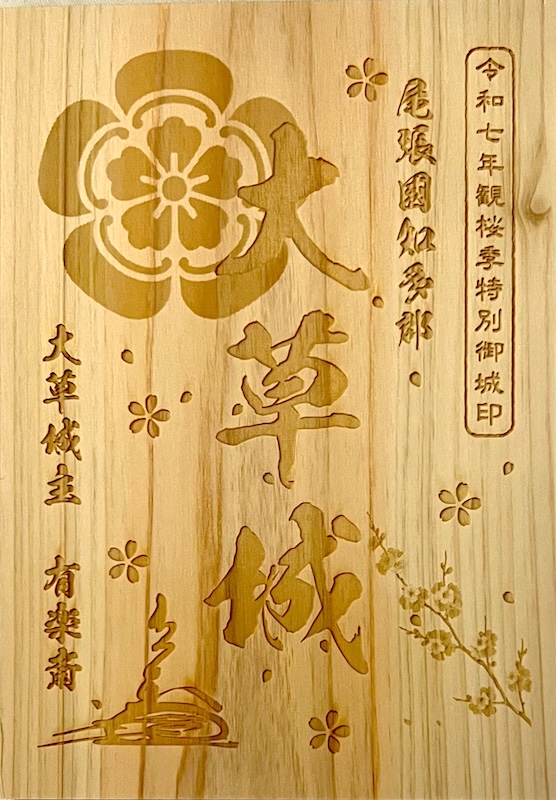 令和七年観桜季特別御城印
尾張國知多郡
大草城
大草城主 有楽斎